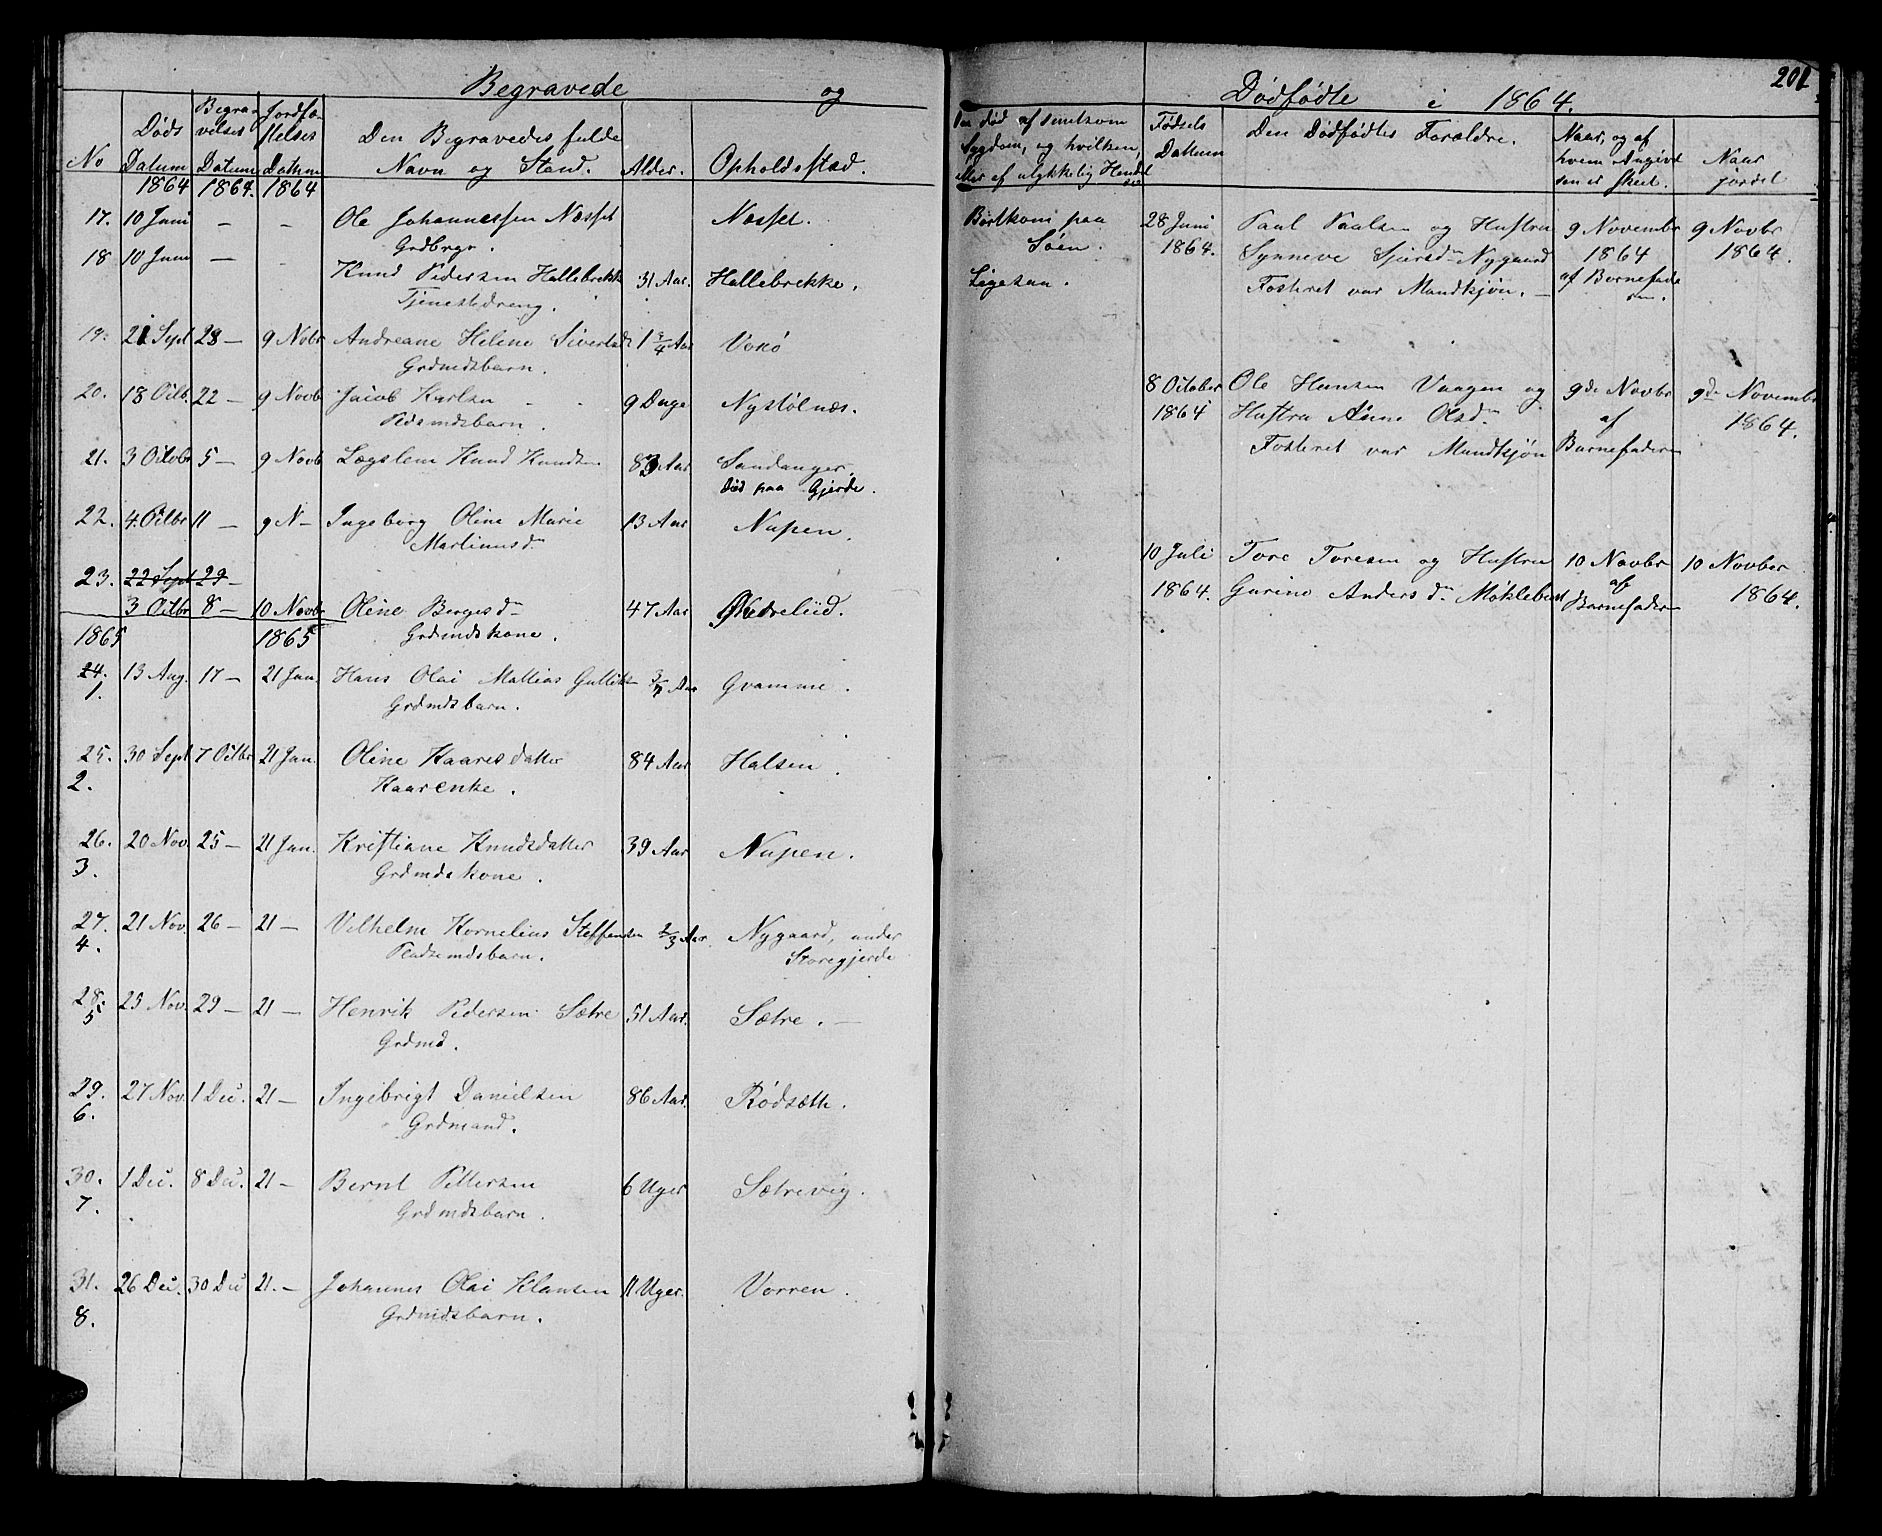 Begravede og
No
Døds Datum 1864
Begravelses Datum 1864.
Jordfæstelses Datum 1864
Den Begravedes fulde Navn og Stand.
Alder.
Opholdssted.
17. 10 Juni — — Ole Johannessen Næsset Næsset.
Grdbrgr.
18 10 Juni — — Knud Pedersen Hallebrekke 31 Aar. Hallebrekke.
Tjenestedreng.
19. 21 Sept 28 — 9 Nobr Andreane Helene Sivertsd 1 3/4 Aar Voxø
Grdmdsbarn.
20. 18 Octb. 22 — 9 Novb Jacob Karlsen 9 Dage Nystølnæs.
Pldsmdsbarn.
21. 3 Octbr 5 — 9 Novb Lægslem Knud Knudsen 83 Aar Sandanger.
død paa Gjerde.
22. 4. Octbr 11 — 9 N — Ingeborg Oline Marie 13 Aar Nupen.
Martinusd.
23. 22 Sept 29 —
3 Octbr 8 — 10 Novbr Oline Bergesd 47 Aar Øvrelid.
1865 1865 Grdmdskone.
24. 13 Aug. 17 — 21 Jan. Hans Olai Mattias Gulliks Aar Gvamme.
1. Grdmdsbarn.
25. 30 Sept 7 Octbr 21 Jan. Oline Kaaresdatter 84 Aar Halsen.
2. Kaarenke.
26. 20 Nov. 25 — 21 Jan. Kristiane Knudsdatter 39 Aar Nupen.
3. Grdmdskone.
27. 21 Nov. 26 — 21 — Vilhelm Kornelius Steffensen 2/3 Aar. Nygaard, under
4. Pladsmdsbarn. Storegjerde
28. 25 Nov. 29 — 21 — Henrik Pedersen Sætre 51 Aar. Sætre. —
5 Grdmd.
29. 27 Nov. 1 Dec. 21 — Ingebrigt Danielsen 86 Aar. Rødsæth.
6. Grdmand.
30. 1 Dec. 8 Dec. 21 — Bernt Pettersen 6 Uger Sætrevig.
7. Grdmdsbarn.
31. 26 Dec. 30 Dec 21. — Johannes Olai Klausen 11 Uger. Vorren.
8. Grdmdsbarn.
Dødfødte i 1864.
201
Om død af smitsom
Sygdom, og hvilken,
eller af ulykkelig Hændelse
Fødsels Datum
Den Dødfødtes Forældre.
Naar, og af
hvem Angivelsen er skeet.
Naar jordet
Bortkom paa
Søen.
Ligesaa.
28 Juni Paul Paulsen og Hustru 9 Novembr 9 Novbr
1864. Synneve Sjursd Nygaard 1864 1864.
Fosteret var Mandkjøn. — af Barnefaderen.
8 October Ole Hansen Vaagen og 9de Novbr 9de Novembr
1864 Hustru Anne Olsd af 1864.
Fosteret var Mandkjøn Barnefaderen
10 Juli Tore Toresen og Hustru 10 Novbr 10 Novber
1864. Gurine Andersd Møklebust af 1864.
Barnefaderen